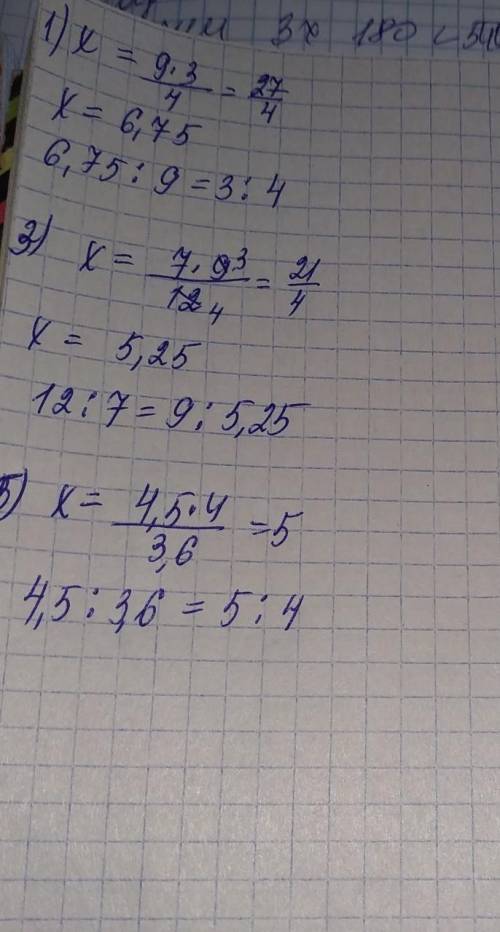 3x 180
1) x = 9·3/4 = 27/4
x = 6,75
6,75 : 9 = 3 : 4
3) x = 7·9³/12₄ = 21/4
x = 5,25
12 : 7 = 9 : 5,25
5) x = 4,5·4/3,6 = 5
4,5 : 3,6 = 5 : 4